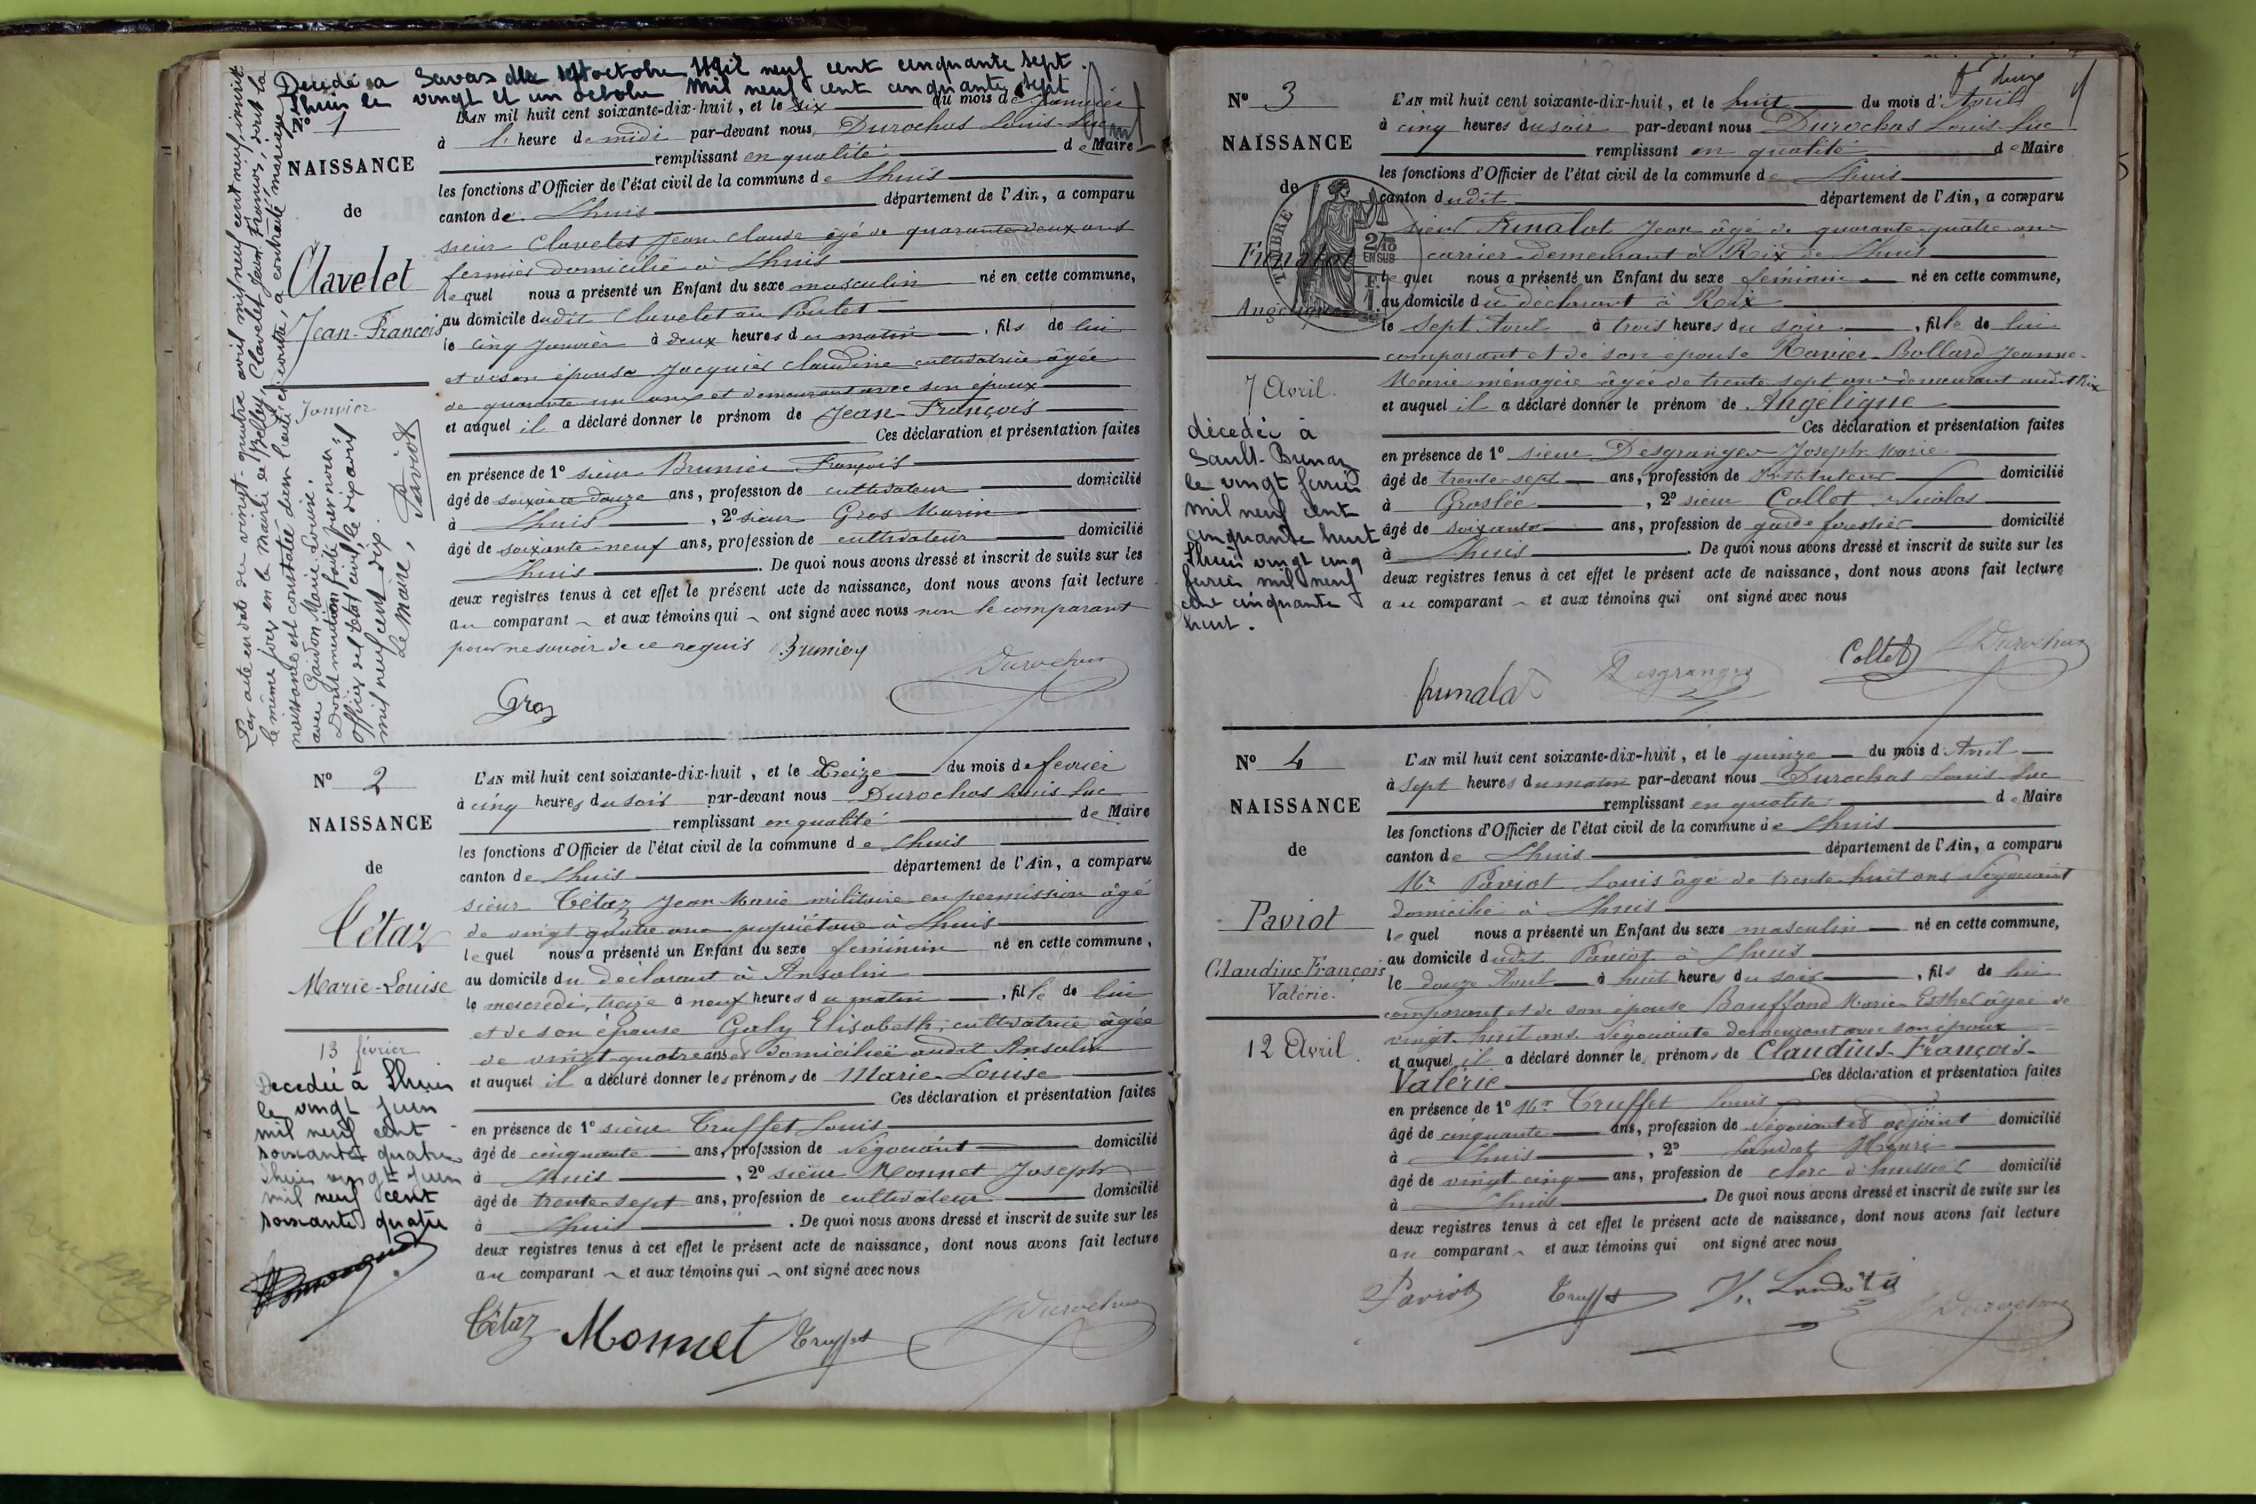 Decédé a Savas
octobre mil neuf cent cinquante sept.
Lhuis le vingt et un octobre mil neuf cent cinquante sept
Nº 1
NAISSANCE
de
Clavelet
Jean-François
Janvier
Par acte en date du vingt-quatre avril mil neuf cent neuf, inscrit
le même jour en la mairie de Belley, Clavelet Jean François, dont la
naissance est constatée dans l'acte ci-contre, a contracté mariage
avec Gaidon Marie Louise.
Dont mention faite par nous
officier de l'état civil, le dix avril
mil neuf cent dix.
Le Maire, Paviot
L'AN mil huit cent soixante-dix-huit, et le six du mois de Janvier
à l' heure de midi par-devant nous Durochas Louis-Luc
remplissant en qualité de Maire
les fonctions d'Officier de l'état civil de la commune de Lhuis
canton de Lhuis département de l'Ain, a comparu
sieur Clavelet Jean Claude âgé de quarante deux ans
fermier domicilié à Lhuis
le quel nous a présenté un Enfant du sexe masculin né en cette commune,
au domicile dudit Clavelet au Poulet
le cinq Janvier à deux heures du matin, fils de lui
et de son épouse Jacquier Claudine cultivatrice âgée
de quarante un ans et demeurant avec son époux
et auquel il a déclaré donner le prénom de Jean-François
Ces déclaration et présentation faites
en présence de 1º sieur Brunier François
âgé de soixante douze ans, profession de cultivateur domicilié
à Lhuis, 2º sieur Gros Marin
âgé de soixante-neuf ans, profession de cultivateur domicilié
Lhuis. De quoi nous avons dressé et inscrit de suite sur les
deux registres tenus à cet effet le présent acte de naissance, dont nous avons fait lecture
au comparant et aux témoins qui ont signé avec nous non le comparant
pour ne savoir de ce requis Brunier
Durochas
Gros
Nº 2
NAISSANCE
de
Tétaz
Marie-Louise
13 février
Decedée à Lhuis
le vingt juin
mil neuf cent
soixante quatre
Lhuis vingt juin
mil neuf cent
soixante quatre
L'AN mil huit cent soixante-dix-huit, et le treize du mois de février
à cinq heures du soir par-devant nous Durochas Louis Luc
remplissant en qualité de Maire
les fonctions d'Officier de l'état civil de la commune de Lhuis
canton de Lhuis département de l'Ain, a comparu
sieur Tétaz Jean Marie militaire en permission âgé
de vingt quatre ans propriétaire à Lhuis
le quel nous a présenté un Enfant du sexe féminin né en cette commune,
au domicile du déclarant à Ansolin
le mercredi treize à neuf heures du matin, fille de lui
et de son épouse Galy Elisabeth, cultivatrice âgée
de vingt quatre ans domiciliée audit Ansolin
et auquel il a déclaré donner les prénoms de Marie-Louise
Ces déclaration et présentation faites
en présence de 1º sieur Truffet Louis
âgé de cinquante ans, profession de Négociant domicilié
à Lhuis, 2º sieur Monnet Joseph
âgé de trente-sept ans, profession de cultivateur domicilié
à Lhuis. De quoi nous avons dressé et inscrit de suite sur les
deux registres tenus à cet effet le présent acte de naissance, dont nous avons fait lecture
au comparant et aux témoins qui ont signé avec nous
Tétaz Monnet Truffet Durochas
deux
Nº 3
NAISSANCE
de
TIMBRE
2/10
EN SUS
Funalot
Angélique
7 Avril.
décedée à
Sault-Brenaz
le vingt février
mil neuf cent
cinquante huit
Lhuis vingt cinq
février mil neuf
cent cinquante
huit.
L'AN mil huit cent soixante-dix-huit, et le huit du mois d'Avril
à cinq heures du soir par-devant nous Durochas Louis-Luc
remplissant en qualité de Maire
les fonctions d'Officier de l'état civil de la commune de Lhuis
canton dudit département de l'Ain, a comparu
sieur Funalot Jean âgé de quarante quatre ans
carrier demeurant à Rix de Lhuis
le quel nous a présenté un Enfant du sexe féminin né en cette commune,
au domicile du déclarant à Rix
le Sept Avril à trois heures du soir, fille de lui
comparant et de son épouse Ravier-Bollard Jeanne-
Marie ménagère âgée de trente sept ans demeurant audit Rix
et auquel il a déclaré donner le prénom de Angélique
Ces déclaration et présentation faites
en présence de 1º sieur Desgranges Joseph Marie
âgé de trente-sept ans, profession de Instituteur domicilié
à Groslée, 2º sieur Collet Nicolas
âgé de soixante ans, profession de garde forestier domicilié
à Lhuis. De quoi nous avons dressé et inscrit de suite sur les
deux registres tenus à cet effet le présent acte de naissance, dont nous avons fait lecture
au comparant et aux témoins qui ont signé avec nous
funalot Desgranges Collet Durochas
Nº 4
NAISSANCE
de
Paviot
Claudius François
Valérie.
12 Avril.
L'AN mil huit cent soixante-dix-huit, et le quinze du mois d'Avril
à sept heures du matin par-devant nous Durochas Louis Luc
remplissant en qualité de Maire
les fonctions d'Officier de l'état civil de la commune de Lhuis
canton de Lhuis département de l'Ain, a comparu
Mr Paviot Louis âgé de trente huit ans Négociant
domicilié à Lhuis
le quel nous a présenté un Enfant du sexe masculin né en cette commune,
au domicile dudit Paviot à Lhuis
le douze Avril à huit heures du soir, fils de lui
comparant et de son épouse Bouffand Marie Esther âgée de
vingt huit ans Négociante demeurant avec son époux
et auquel il a déclaré donner les prénoms de Claudius-François-
Valérie Ces déclaration et présentation faites
en présence de 1º Mr Truffet Louis
âgé de cinquante ans, profession de Négociant et adjoint domicilié
à Lhuis, 2º Landot Henri
âgé de vingt cinq ans, profession de clerc d'huissier domicilié
à Lhuis. De quoi nous avons dressé et inscrit de suite sur les
deux registres tenus à cet effet le présent acte de naissance, dont nous avons fait lecture
au comparant et aux témoins qui ont signé avec nous
Paviot Truffet Durochas